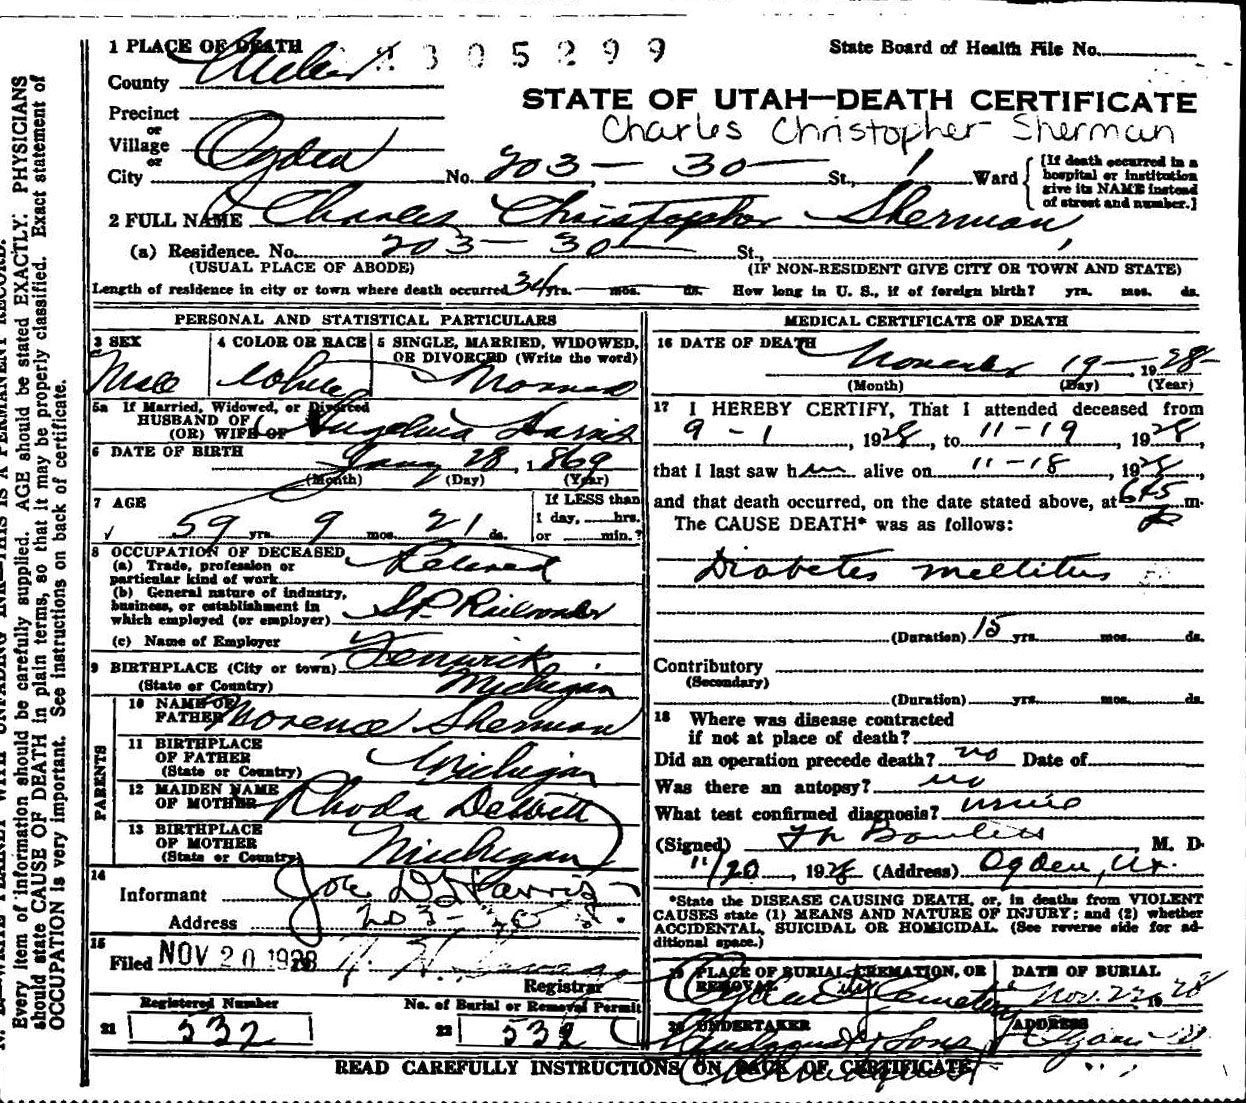 1 PLACE OF DEATH
2305299
State Board of Health File No.
County Weber
STATE OF UTAH—DEATH CERTIFICATE
Charles Christopher Sherman
Precinct
or
Village
or
City Ogden No. 203 - 30 St., 1 Ward
[If death occurred in a
hospital or institution
give its NAME instead
of street and number.]
2 FULL NAME Charles Christopher Sherman
(a) Residence. No. 203 - 30 St.,
(USUAL PLACE OF ABODE) (IF NON-RESIDENT GIVE CITY OR TOWN AND STATE)
Length of residence in city or town where death occurred 34 yrs. mos. ds. How long in U. S., if of foreign birth? yrs. mos. ds.
PERSONAL AND STATISTICAL PARTICULARS
3 SEX Male
4 COLOR OR RACE White
5 SINGLE, MARRIED, WIDOWED,
OR DIVORCED (Write the word)
Married
5a If Married, Widowed, or Divorced
HUSBAND OF
(OR) WIFE OF Angelina Harris
6 DATE OF BIRTH Jany 28, 1869
(Month) (Day) (Year)
7 AGE
59 yrs. 9 mos. 21 ds.
If LESS than
1 day, hrs.
or min.?
8 OCCUPATION OF DECEASED
(a) Trade, profession or
particular kind of work Retired
(b) General nature of industry,
business, or establishment in
which employed (or employer) S.P. Railroader
(c) Name of Employer
9 BIRTHPLACE (City or town) Fenwick
(State or Country) Michigan
PARENTS
10 NAME OF
FATHER Morence Sherman
11 BIRTHPLACE
OF FATHER
(State or Country) Michigan
12 MAIDEN NAME
OF MOTHER Rhoda DeWitt
13 BIRTHPLACE
OF MOTHER
(State or Country) Michigan
14
Informant Joe D Harris
Address 203-
15
Filed NOV 20 1928
Registrar
Registered Number
21 532
No. of Burial or Removal Permit
22 532
MEDICAL CERTIFICATE OF DEATH
16 DATE OF DEATH November 19 1928
(Month) (Day) (Year)
17 I HEREBY CERTIFY, That I attended deceased from
9 - 1, 1928, to 11-19, 1928,
that I last saw him alive on 11-18, 1928,
and that death occurred, on the date stated above, at 645 m.
P
The CAUSE DEATH* was as follows:
Diabetes mellitus
(Duration) 15 yrs. mos. ds.
Contributory
(Secondary)
(Duration) yrs. mos. ds.
18 Where was disease contracted
if not at place of death?
Did an operation precede death? no Date of
Was there an autopsy? no
What test confirmed diagnosis? urine
(Signed) M. D.
11/20, 1928 (Address) Ogden, Ut.
*State the DISEASE CAUSING DEATH, or, in deaths from VIOLENT
CAUSES state (1) MEANS AND NATURE OF INJURY; and (2) whether
ACCIDENTAL, SUICIDAL OR HOMICIDAL. (See reverse side for ad-
ditional space.)
19 PLACE OF BURIAL, CREMATION, OR
REMOVAL
Ogden City Cemetery
DATE OF BURIAL
Nov. 22 1928
20 UNDERTAKER
Lindquist & Sons
ADDRESS
Ogden
READ CAREFULLY INSTRUCTIONS ON BACK OF CERTIFICATE
Every item of information should be carefully supplied. AGE should be stated EXACTLY. PHYSICIANS
should state CAUSE OF DEATH in plain terms, so that it may be properly classified. Exact statement of
OCCUPATION is very important. See instructions on back of certificate.